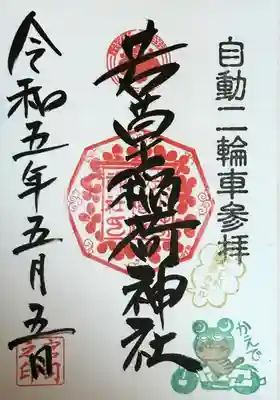 自動二輪車参拝
若草稲荷神社
令和五年五月五日
かえで